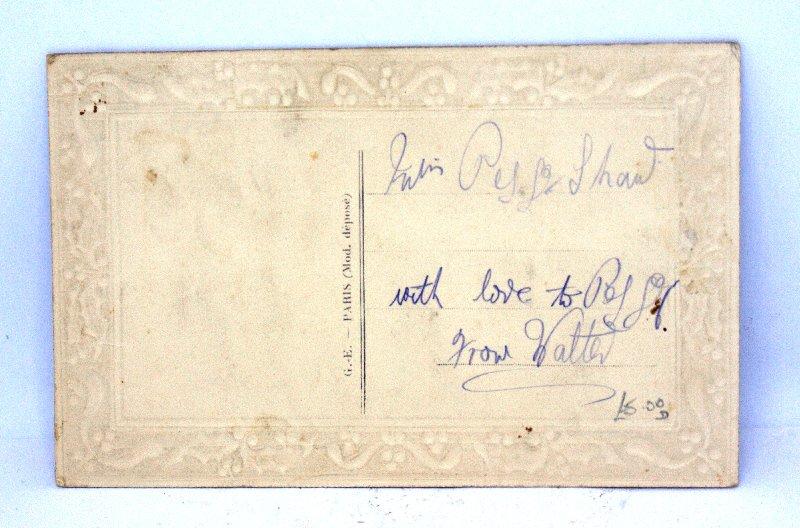 G.-E. — PARIS (Mod. déposé)
Miss Peggy Shaw
with love to Peggy
from Walter